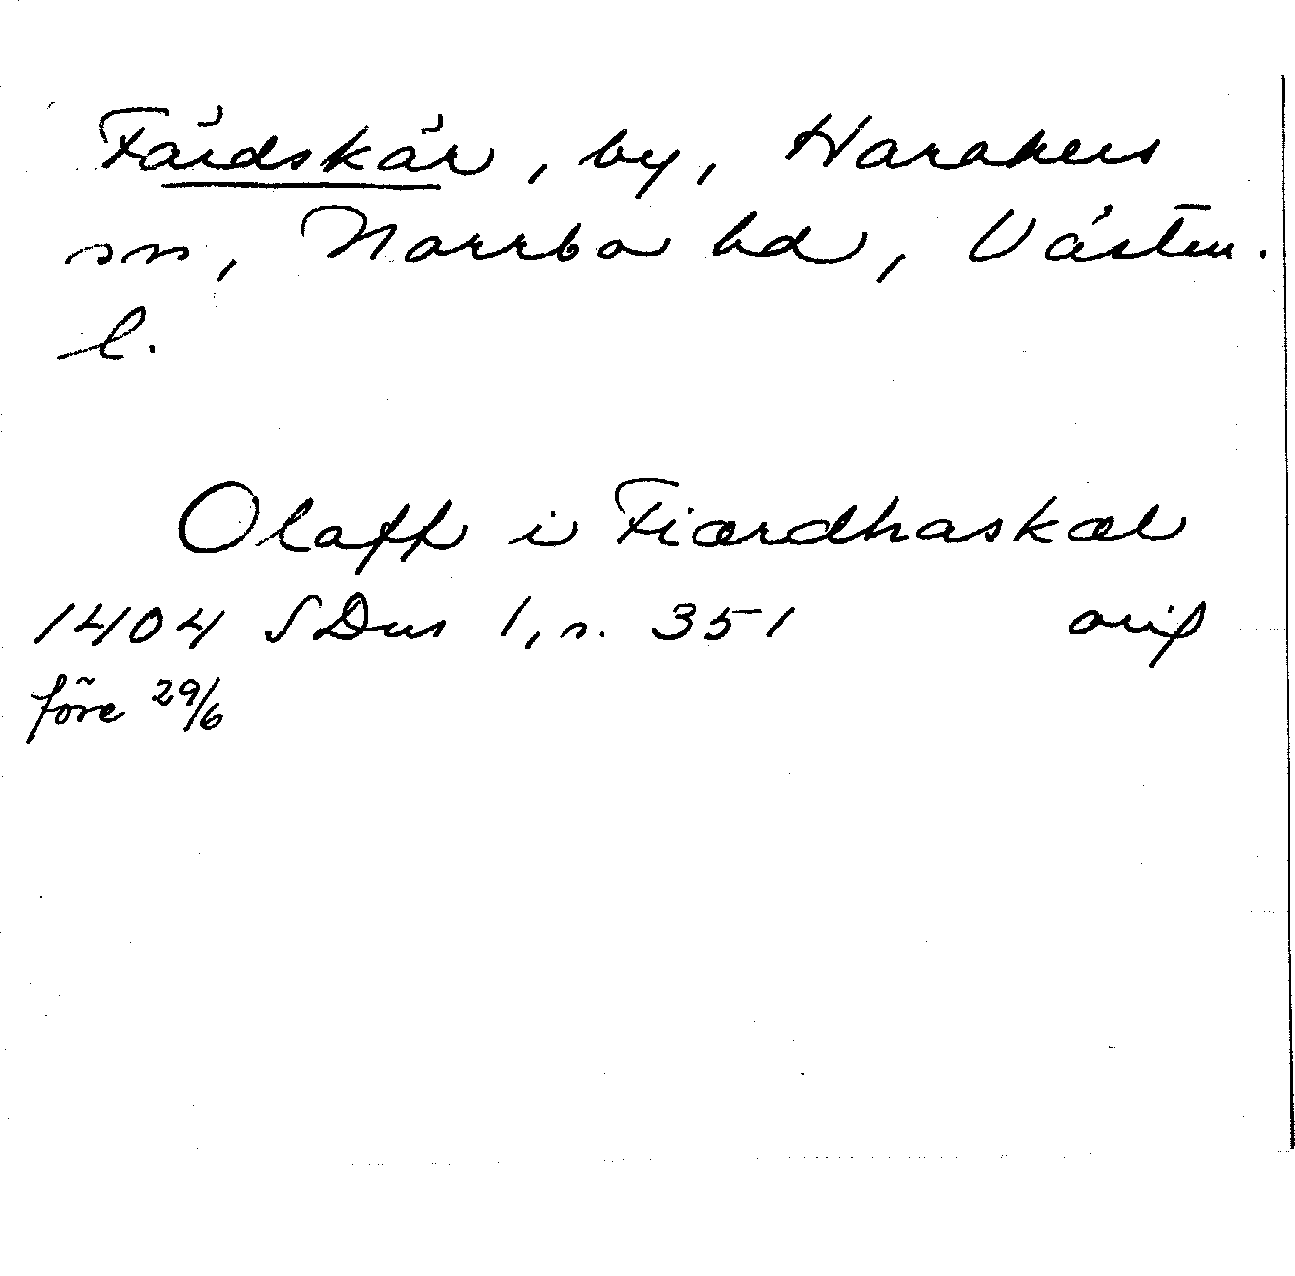 Färdskär, by, Harakers
sn, Norrbo hd, Västm.
l.
Olaff i Fiærdhaskæl
1404 SDns 1, s. 351 orig
före 29/6